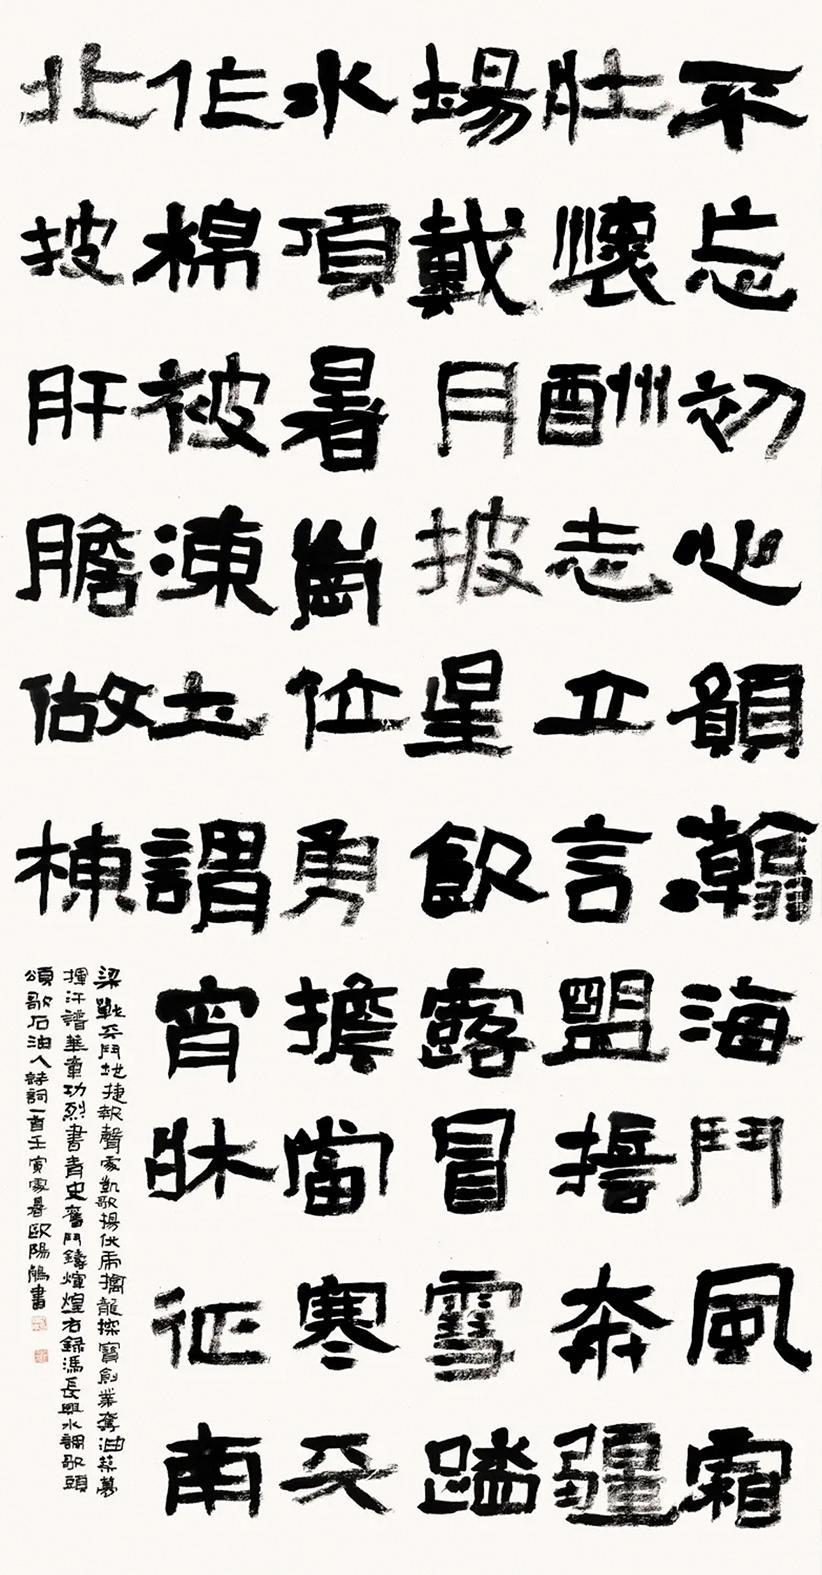 不忘初心願瀚海鬥風霜
壯懷酬志立言盟誓奔疆
場戴月披星飲露冒雪踏
冰頂暑崗位勇擔當寒天
作棉被凍土謂宵牀征南
北披肝膽做棟
梁戰天鬥地捷報聲處凱歌揚伏虎擒龍探寶創業奪油築夢
揮汗譜華章功烈書青史奮鬥鑄煇煌右録馮長興水調歌頭
頌歌石油人詩詞一首壬寅處暑歐陽書